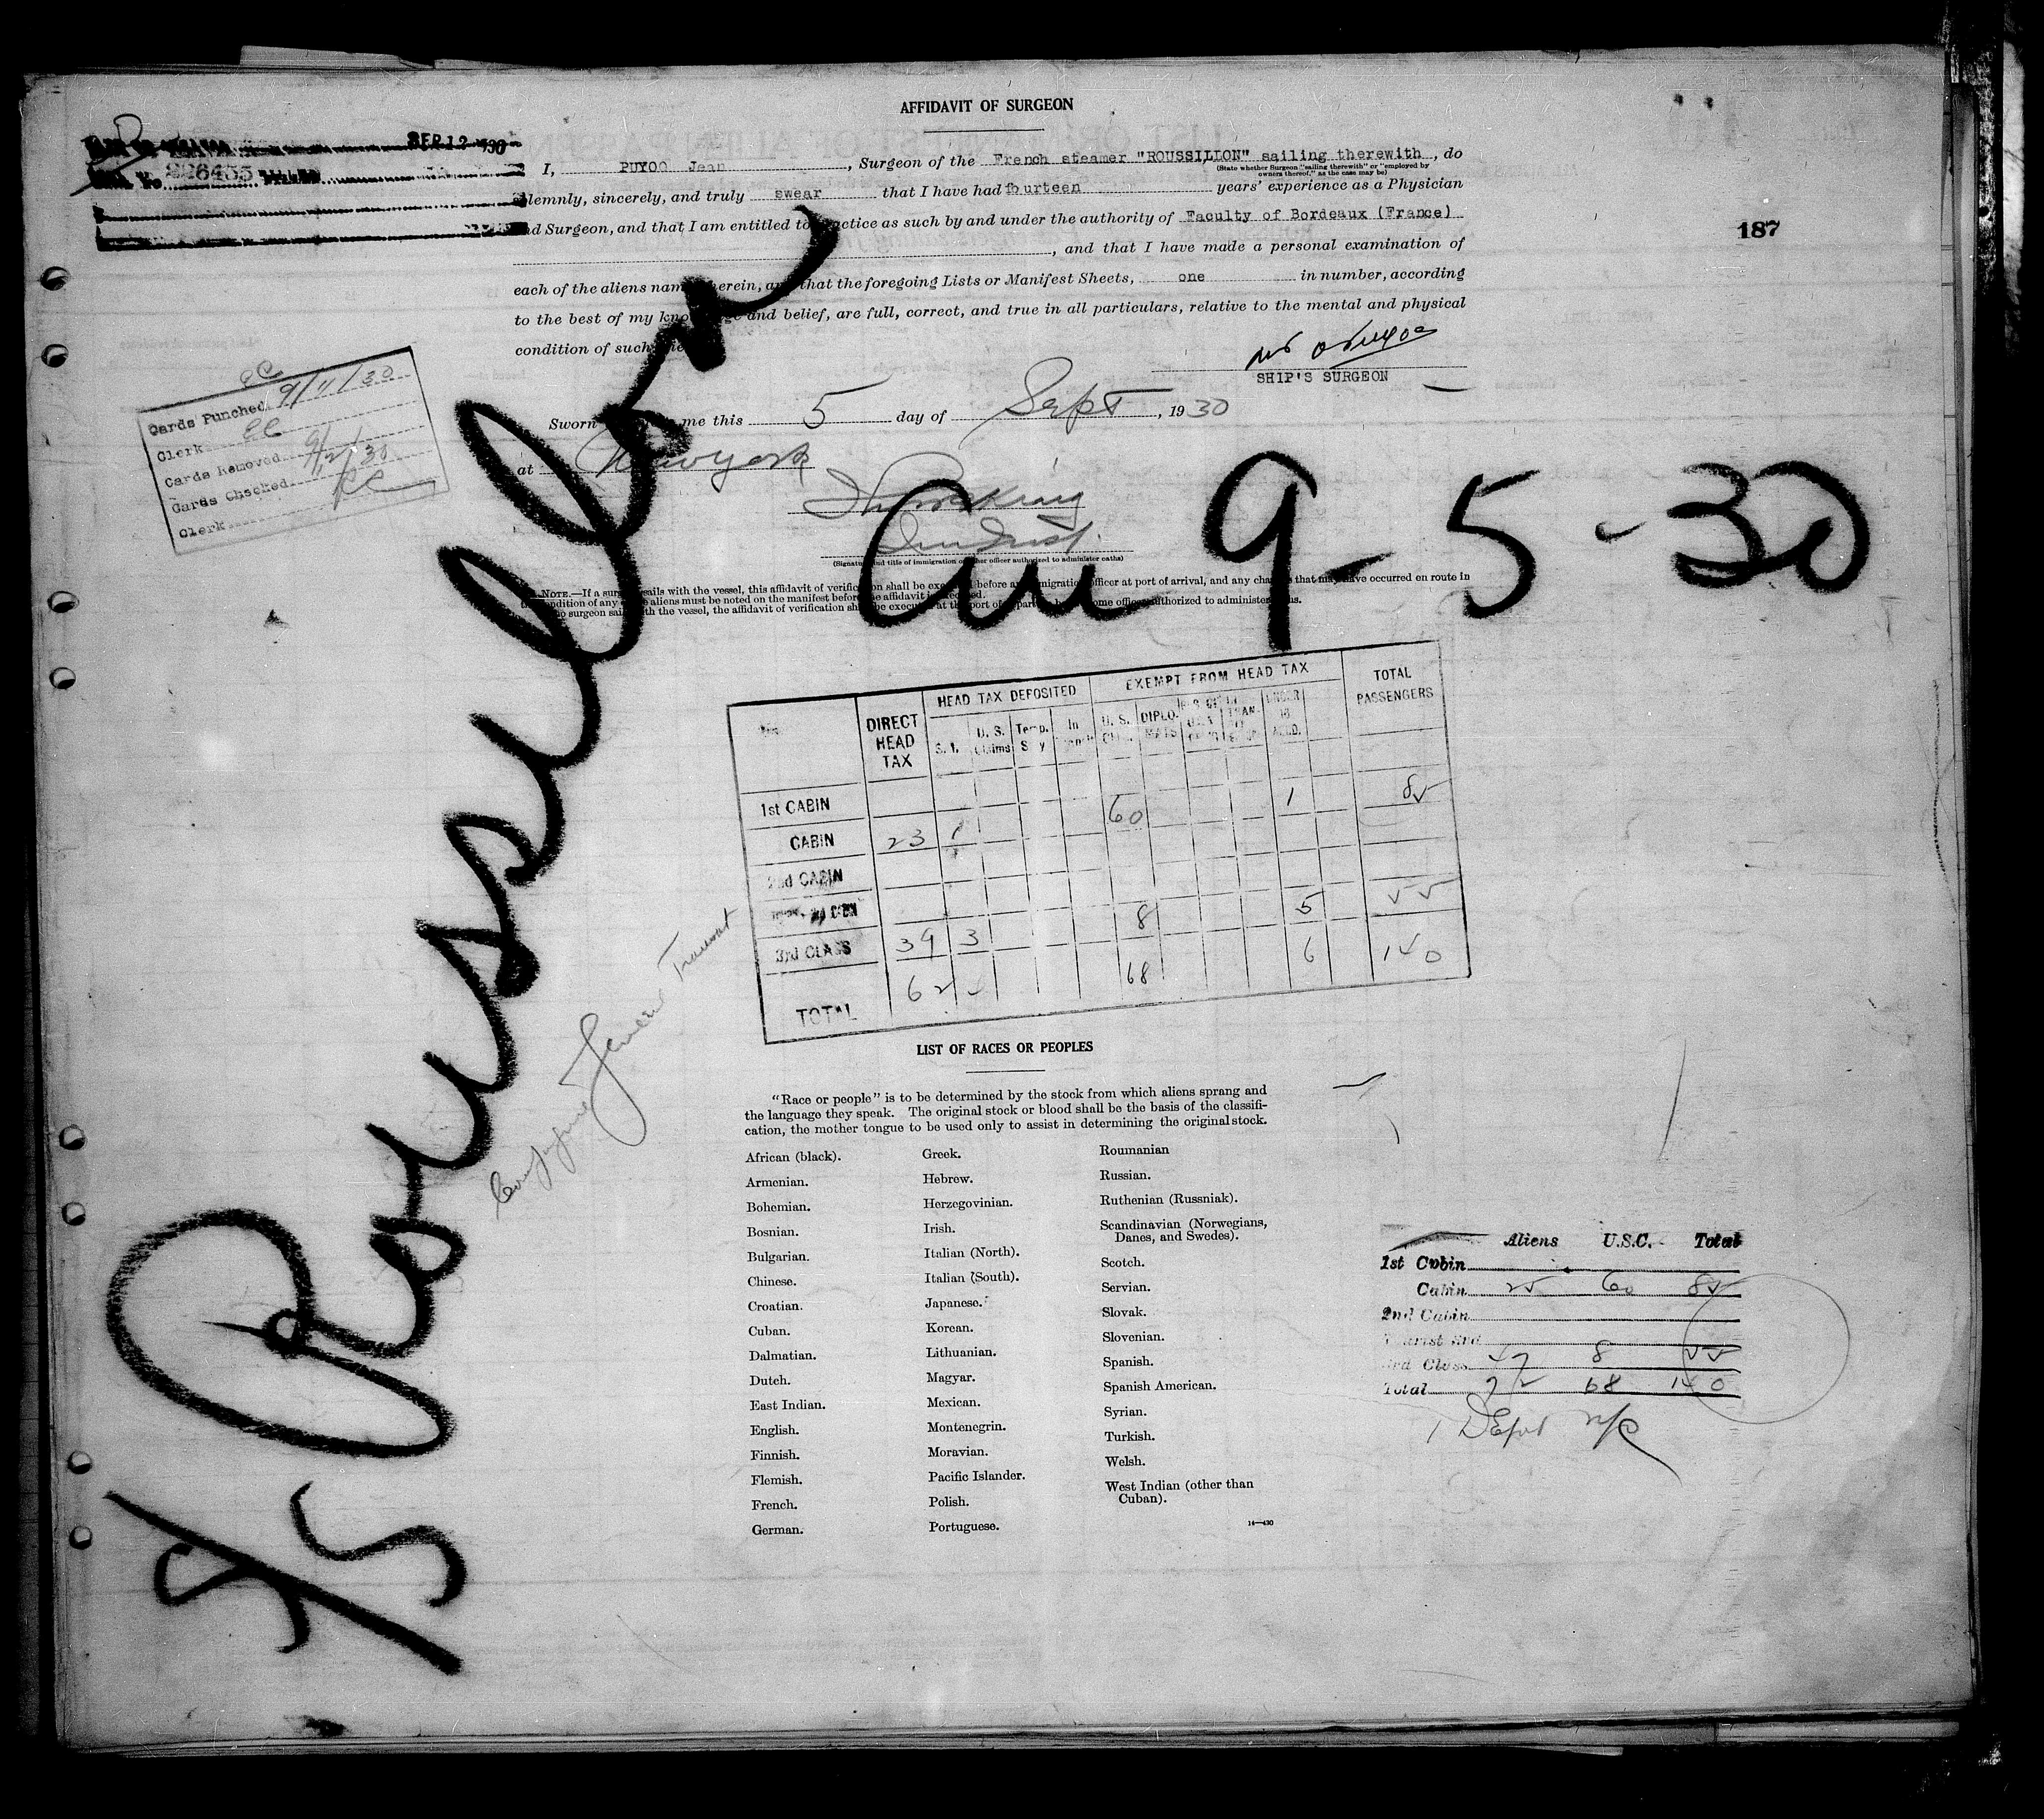 AFFIDAVIT OF SURGEON
SEP 12 1930
226453
187
I, PUYOO Jean, Surgeon of the French steamer "ROUSSILLON" sailing therewith, do
(State whether Surgeon "sailing therewith" or "employed by
owners thereof," as the case may be)
solemnly, sincerely, and truly swear that I have had fourteen years' experience as a Physician
and Surgeon, and that I am entitled to practice as such by and under the authority of Faculty of Bordeaux (France)
, and that I have made a personal examination of
each of the aliens named herein, and that the foregoing Lists or Manifest Sheets, one in number, according
to the best of my knowledge and belief, are full, correct, and true in all particulars, relative to the mental and physical
condition of such
SHIP'S SURGEON
Sworn me this 5 day of Sept, 1930
at New York
(Signature and title of immigration officer authorized to administer oaths)
NOTE.—If a surgeon sails with the vessel, this affidavit of verification shall be executed before an immigration officer at port of arrival, and any changes that may have occurred en route in
the condition of any aliens must be noted on the manifest before the affidavit is executed.
surgeon sails with the vessel, the affidavit of verification shall be executed at the port of some officer authorized to administer oaths.
Cards Punched 9/11/30
Clerk
Cards Removed
Cards Checked 9/12/30
Clerk
S/S Roussillon
Arr 9-5-30
DIRECT HEAD TAX
HEAD TAX DEPOSITED
EXEMPT FROM HEAD TAX
TOTAL PASSENGERS
S. I.
U. S. Claims
Temp. Stay
In
U. S.
DIPLOMATS
UNDER 16
1st CABIN
CABIN 23 1 60 1 85
2nd CABIN
3rd CLASS 39 3 8 5 55
TOTAL 62 68 6 140
LIST OF RACES OR PEOPLES
"Race or people" is to be determined by the stock from which aliens sprang and
the language they speak. The original stock or blood shall be the basis of the classifi-
cation, the mother tongue to be used only to assist in determining the original stock.
African (black).
Armenian.
Bohemian.
Bosnian.
Bulgarian.
Chinese.
Croatian.
Cuban.
Dalmatian.
Dutch.
East Indian.
English.
Finnish.
Flemish.
French.
German.
Greek.
Hebrew.
Herzegovinian.
Irish.
Italian (North).
Italian (South).
Japanese.
Korean.
Lithuanian.
Magyar.
Mexican.
Montenegrin.
Moravian.
Pacific Islander.
Polish.
Portuguese.
Roumanian
Russian.
Ruthenian (Russniak).
Scandinavian (Norwegians,
Danes, and Swedes).
Scotch.
Servian.
Slovak.
Slovenian.
Spanish.
Spanish American.
Syrian.
Turkish.
Welsh.
West Indian (other than
Cuban).
14—430
Aliens U.S.C. Total
1st Cabin
Cabin 25 60 85
2nd Cabin
Tourist 3rd
3rd Class 47 8 55
Total 72 68 140